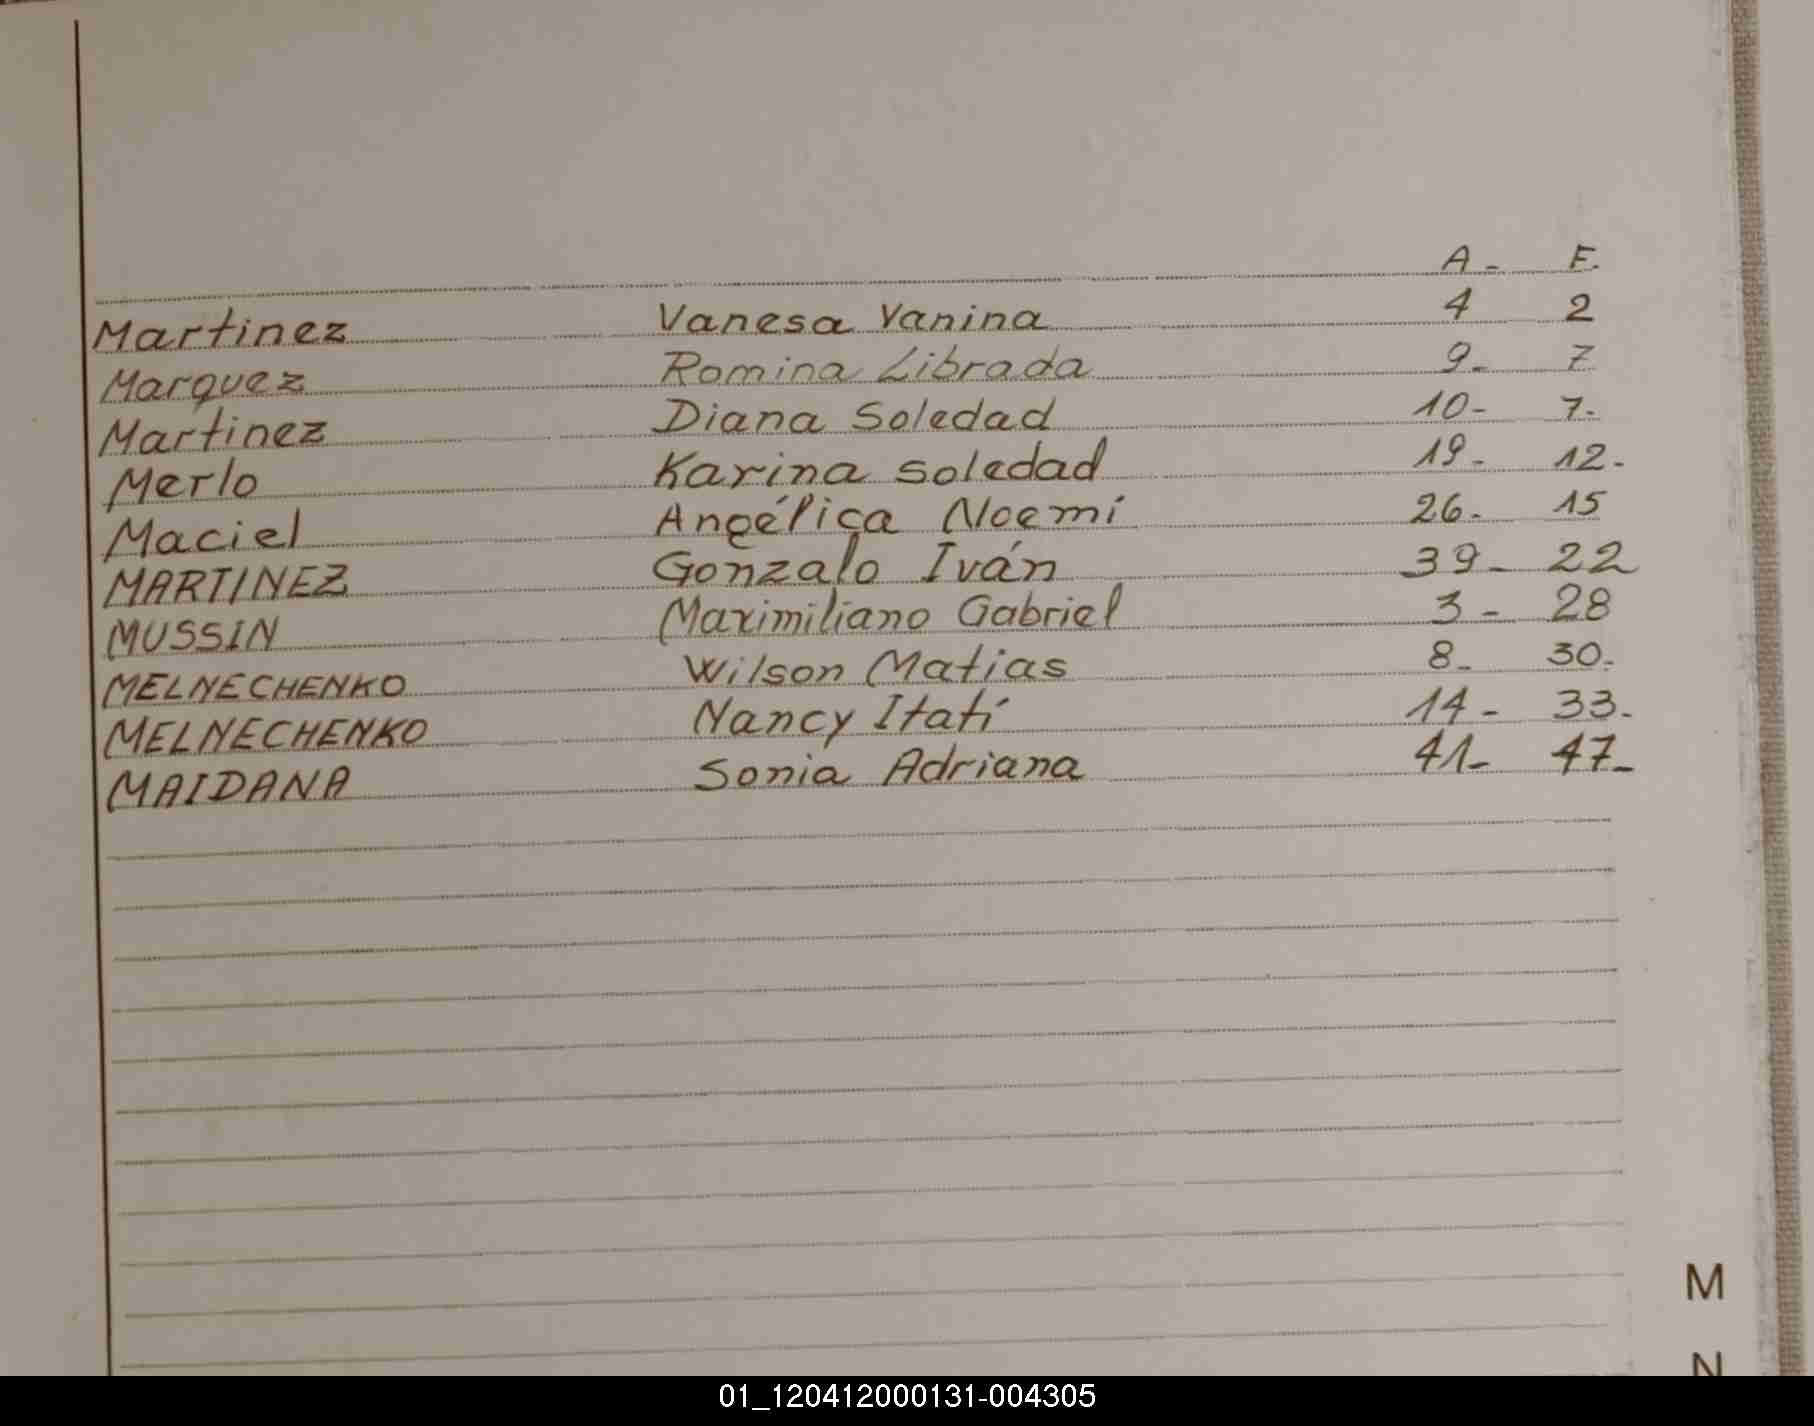 A - F.
Martinez Vanesa Yanina 4 2
Marquez Romina Librada 9- 7
Martinez Diana Soledad 10- 7-
Merlo Karina Soledad 19- 12-
Maciel Angélica Noemí 26- 15
MARTINEZ Gonzalo Iván 39- 22
MUSSIN Maximiliano Gabriel 3- 28
MELNECHENKO Wilson Matias 8- 30-
MELNECHENKO Nancy Itatí 14- 33-
MAIDANA Sonia Adriana 41- 47-
M
N
01_120412000131-004305